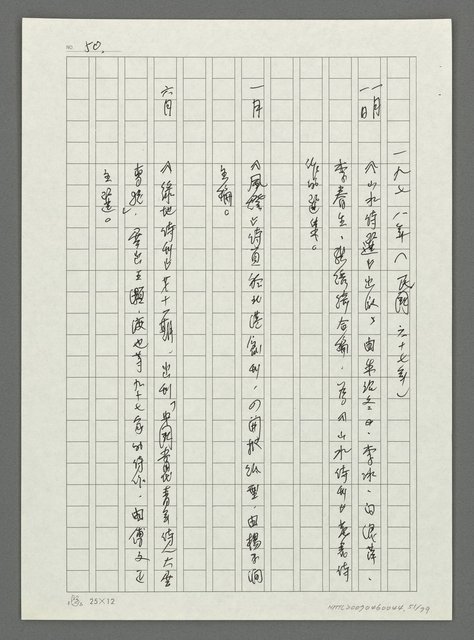 NO. 50.
一九七八年（民國六十七年）
一月一日
《山水詩選》出版，由朱沉冬、李冰、白浪萍、
李春生、張綉綺合編，為《山水詩刊》發表詩
作的選集。
一月
《風燈》詩頁於北港創刊，4開報紙型，由楊子澗
主編。
六月
《綠地詩刊》第十一期，出刊「中國當代青年詩人大展
專號」，展出王灝、渡也等九十七家的詩作，由傅文正
主選。
25×12
NMTL20070460044. 51/79